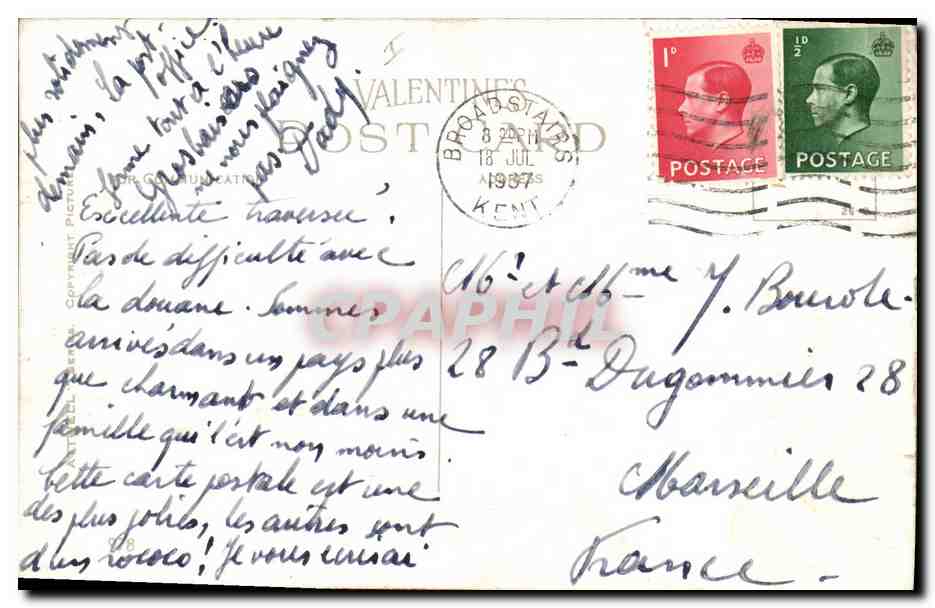 plus rapidement
demain, la post-
office
ferme tout à l'heure
ne nous plaignez
pas. Dady.
I
VALENTINE'S
POST CARD
FOR COMMUNICATION
ADDRESS
BROADSTAIRS
8 2 PM
18 JUL
1937
KENT
1D
POSTAGE
½D
POSTAGE
Excellente traversée.
Pas de difficulté avec
la douane. Sommes
arrivés dans un pays plus
que charmant et dans une
famille qui l'est non moins.
Cette carte postale est une
des plus jolies, les autres sont
d'un rococo! Je vous écrirai
Mr et Mme J. Bourote.
28 Bd Dugommier 28
Marseille
France.
COPYRIGHT PICTURE
SERIES
CPAPHIL